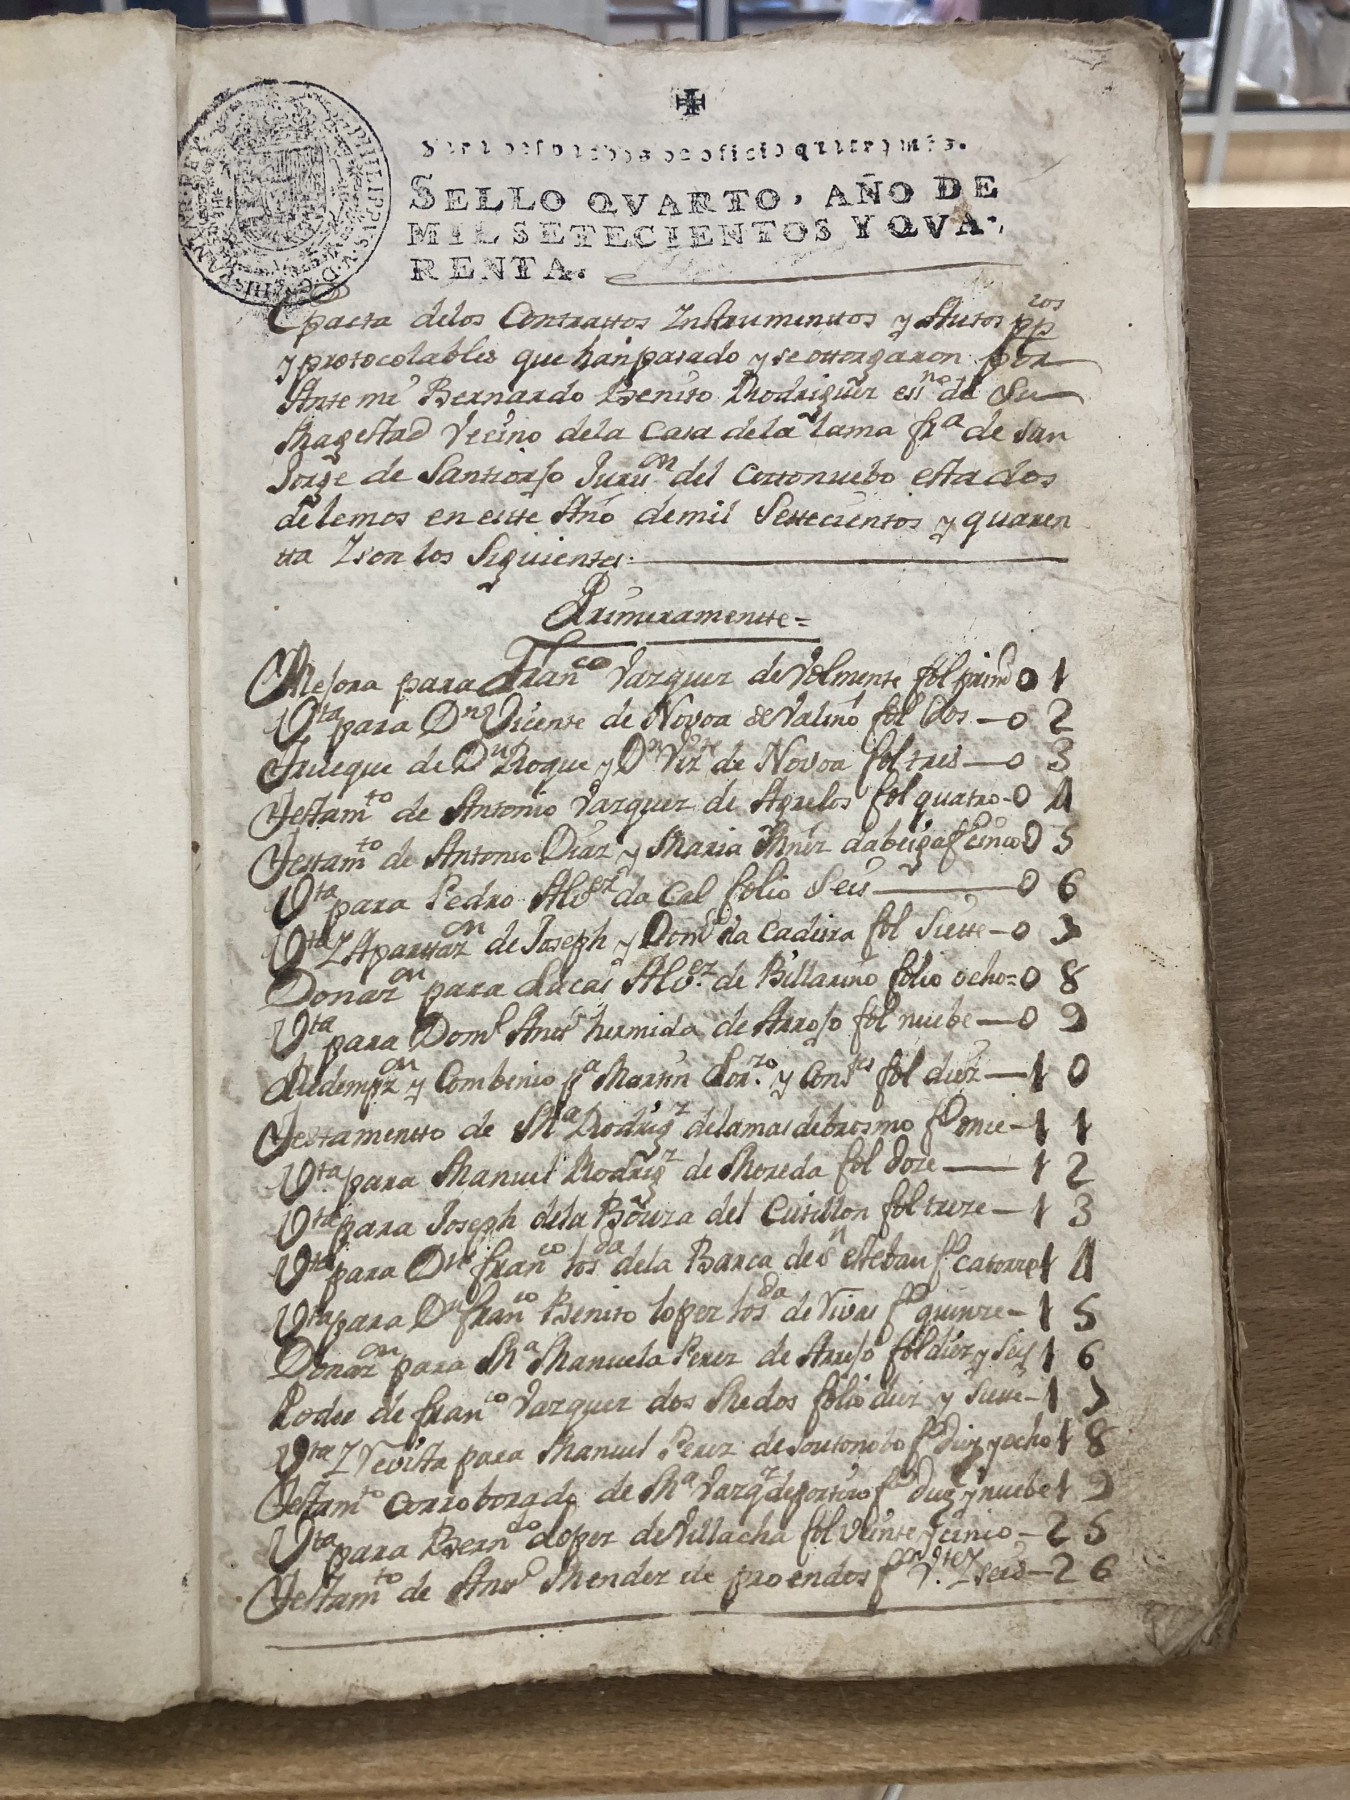 Para despachos de oficio quatro mrs.
SELLO QVARTO, AÑO DE
MIL SETECIENTOS Y QVA-
RENTA.
PHILIPPUS.V.D.G. HISPANIAR. REX
Epacta delos Contrattos Instrumenttos y Auttos ppcos
y protocolables que han pasado y se ottorgaron por
Ante mi Bernardo Benito Rodriguez essno de Su
Magestad Vecino dela Casa dela lama fra de San
Jorge de Santiorjo Juron del Cottonuebo estados
de lemos en estte Año demil Settecientos y quaren
tta Y son los Siguientes
Primeramentte=
Mejora para Franco Vazquez de Volmente fol primo 0 1
Vta para Dn Vicente de Novoa de Valiño fol dos - 0 2
Trueque de Dn Roque y Dn Vizte de Novoa fol tres - 0 3
Testamto de Antonio Vazquez de Agrelos fol quatro - 0 4
Testamto de Antonio Diaz y Maria Mñiz dabeiga fo cinco 0 5
Vta para Pedro Alvez da Cal folio Seis - 0 6
Vta Y Aparttazon de Joseph y Domo da Cadeira fol Siette - 0 7
Donazon para Lucas Alvez de Billarino folio ocho = 0 8
Vta para Domo Anttº hermida de Arrojo fol nuebe - 0 9
Redempzon y Combenio pa Martin Lorzo y Constes fol diez - 1 0
Testamentto de Ma Rodrigz delamas debrosmo fo once - 1 1
Vta para Manuel Rodrigz de Moreda fol doze - 1 2
Vta para Joseph dela Bouza del Cutillon fol treze - 1 3
Vta para Dn franco losda dela Barca de Sn esteban fo catorze 1 4
Vta para Dn franco Benito lopez losda de Vivas fo quinze - 1 5
Donazon para Ma Manuela Perez de Arrojo fol diez y Seis 1 6
Poder de franco Vazquez dos Medos folio diez y Siette - 1 7
Vta Y Revista para Manuel Perez de Souttonobo fo diez y ocho 1 8
Testamto Corroborado de Ma Vazqz deportizo fo diez y nuebe 1 9
Vta para Berndo lopez de Villacha fol Veinte y cinco - 2 5
Testamto de Antº Mendez de proendos fo Vte Y seis - 2 6